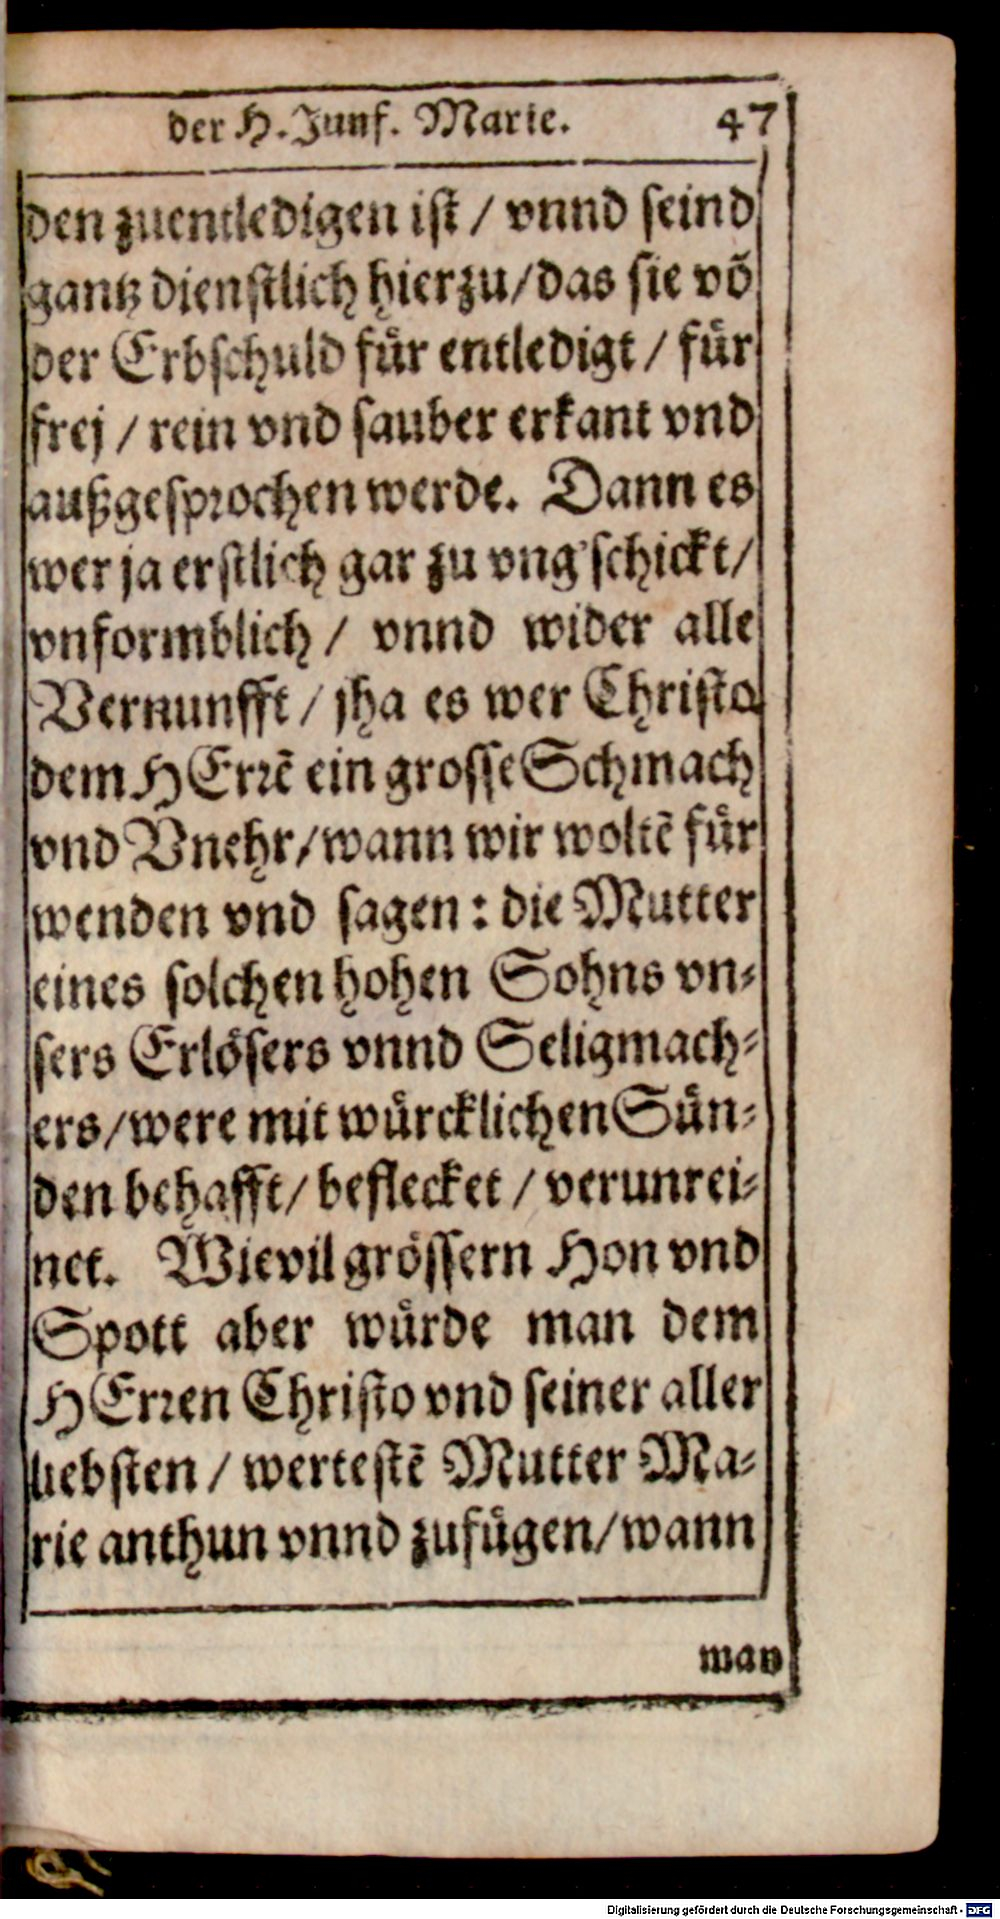 der H. Junf. Marie. 47
den zuentledigen ist / vnnd seind
gantz dienstlich hierzu / das sie võ
der Erbschuld für entledigt / für
frej / rein vnd sauber erkant vnd
außgesprochen werde. Dann es
wer ja erstlich gar zu vng'schickt /
vnformblich / vnnd wider alle
Vernunfft / jha es wer Christo
dem HErrẽ ein grosse Schmach
vnd Vnehr / wann wir woltẽ für
wenden vnd sagen: die Mutter
eines solchen hohen Sohns vn-
sers Erlösers vnnd Seligmach-
ers / were mit würcklichen Sün-
den behafft / beflecket / verunrei-
net. Wievil grössern Hon vnd
Spott aber würde man dem
HErren Christo vnd seiner aller
liebsten / wertestẽ Mutter Ma-
rie anthun vnnd zufügen / wann
man
Digitalisierung gefördert durch die Deutsche Forschungsgemeinschaft - DFG